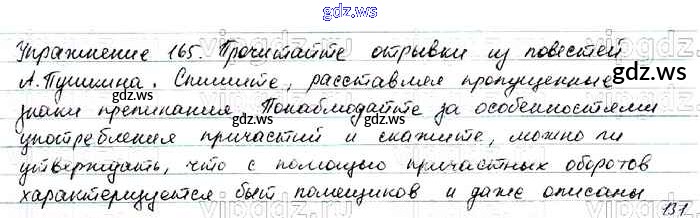 gdz.ws
Упражнение 165. Прочитайте отрывки из повестей
А. Пушкина. Спишите, расставляя пропущенные
gdz.ws
gdz.ws
знаки препинания. Понаблюдайте за особенностями
употребления причастий и скажите, можно ли
gdz.ws
утверждать, что с помощью причастных оборотов
характеризуется быт помещиков и даже описаны
gdz.ws
131